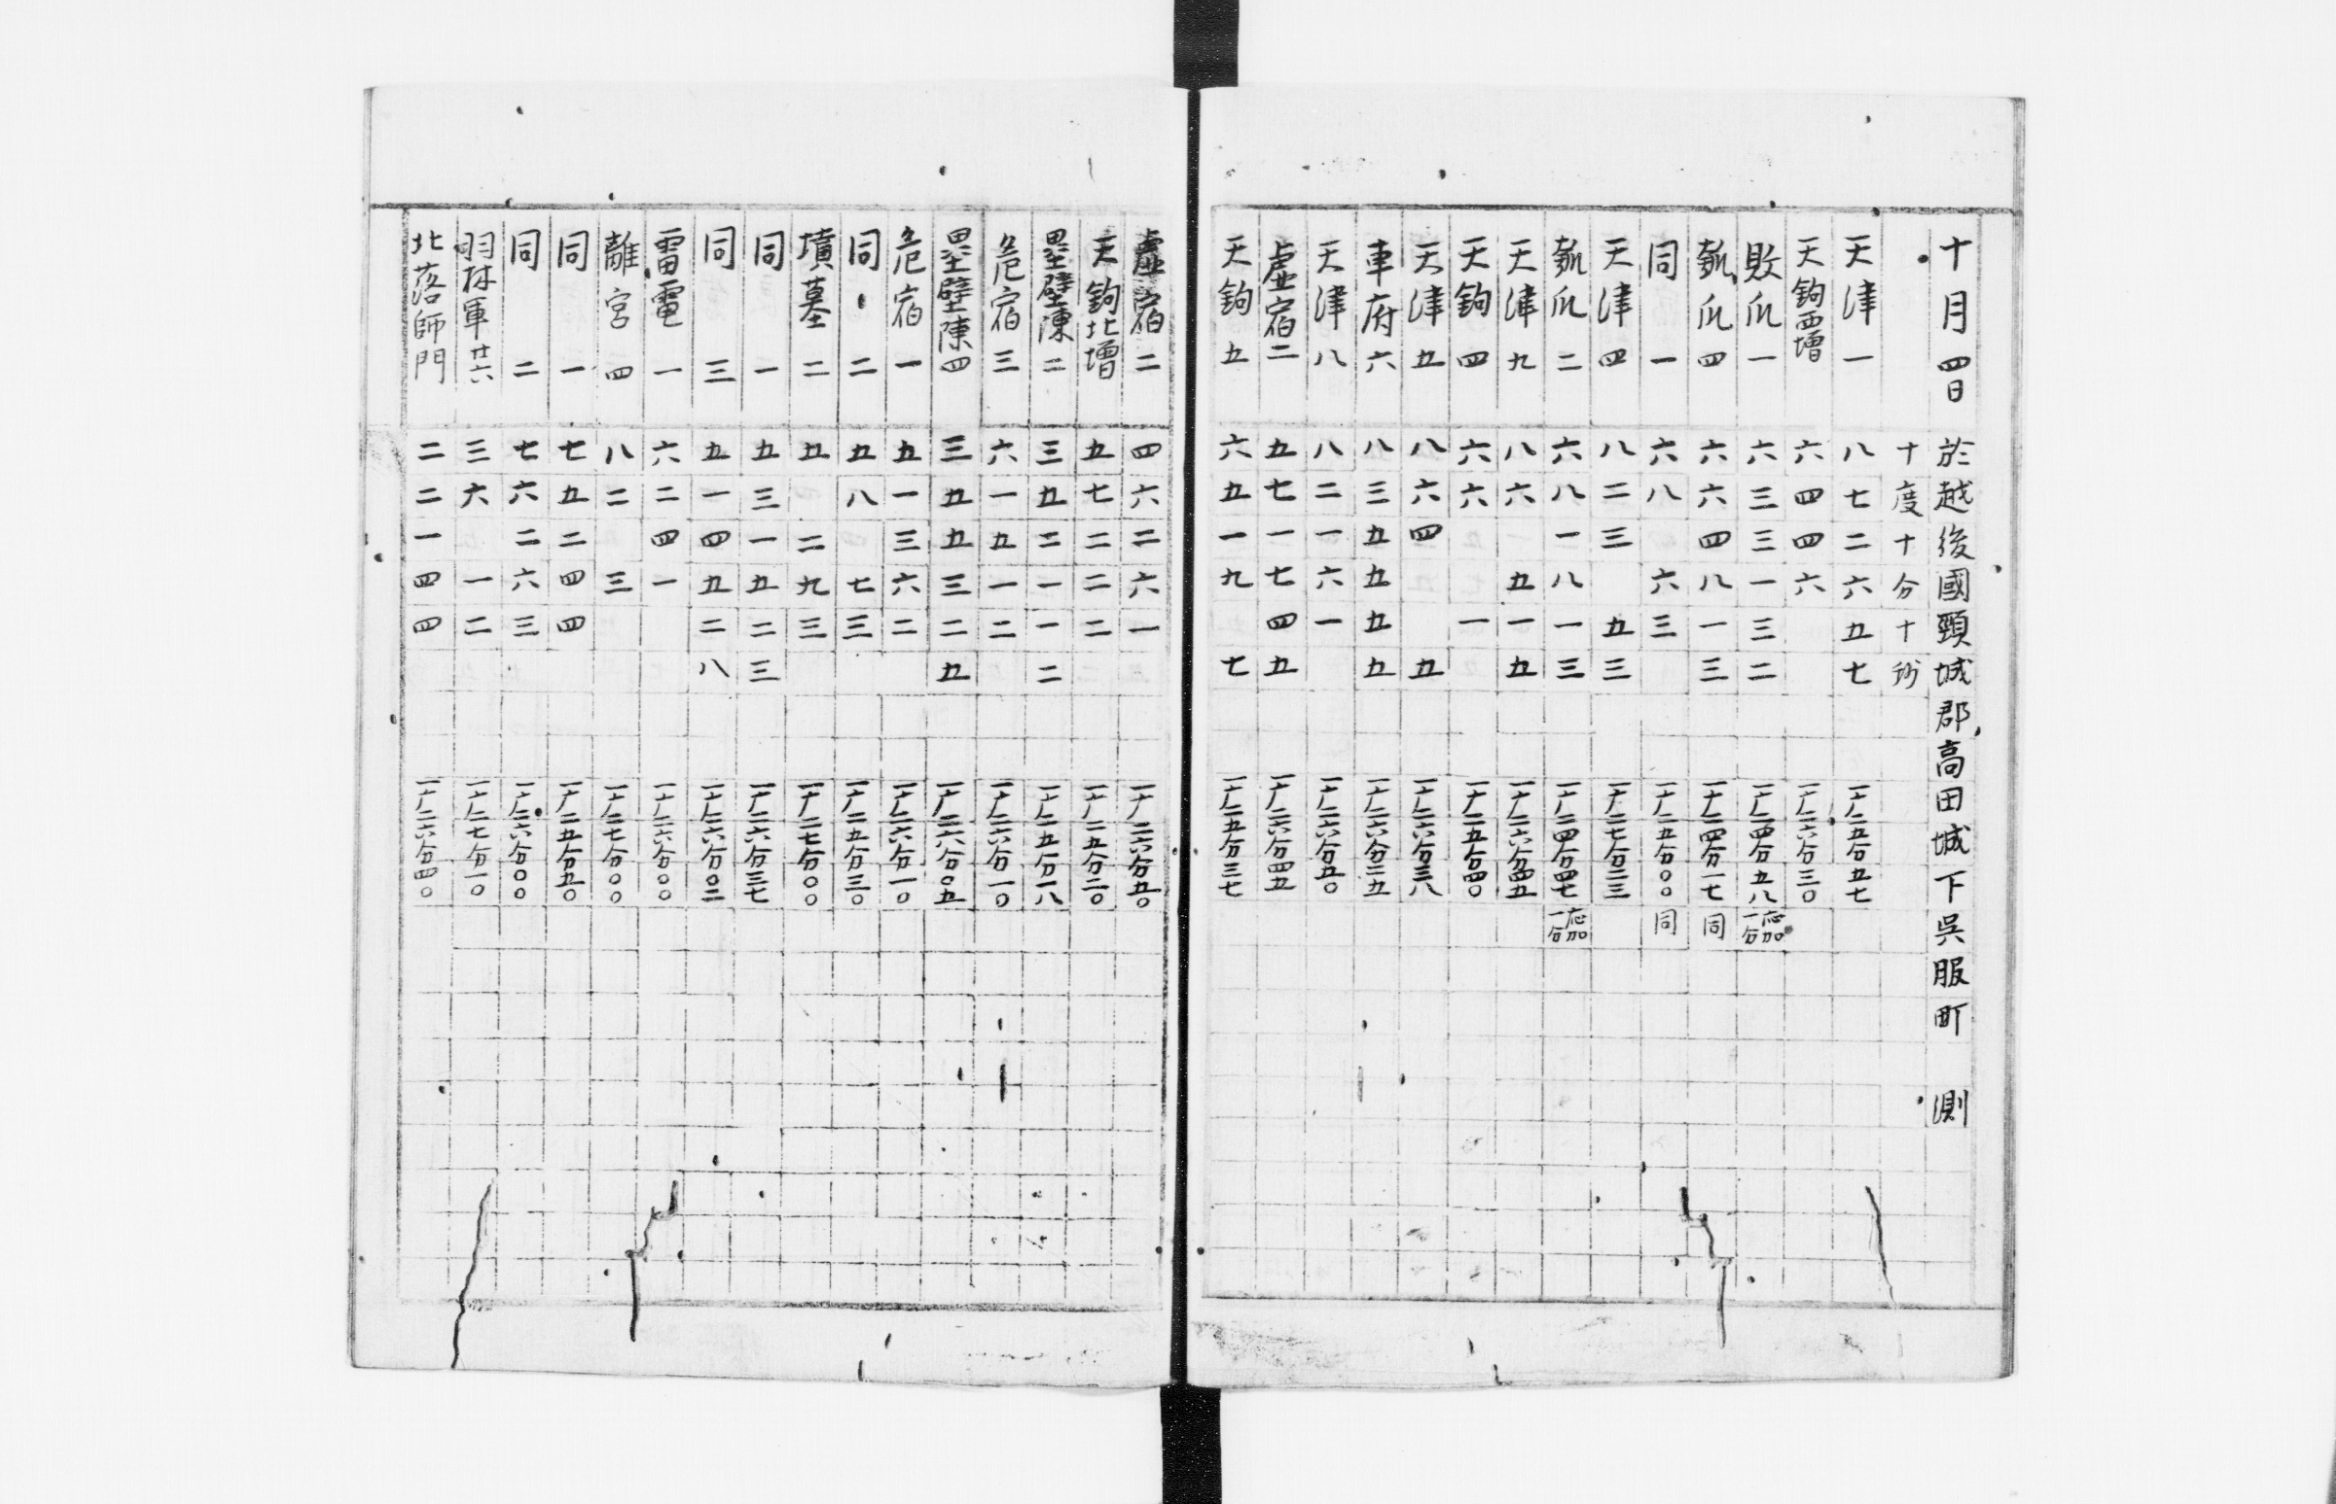 十月四日 於越後國頸城郡高田城下呉服町 測
十度十分十秒
天津一 八七二六五七 一广二五分五七
天鈎西増 六四四六 一广二六分三〇
敗瓜一 六三三一三二 一广二四分五八 応加一分
瓠瓜四 六六四八一三 一广二四分一七 同
同一 六八 六三 一广二五分〇〇 同
天津四 八二三 五三 一广二七分二三
瓠瓜二 六八一八一三 一广二四分四七 応加一分
天津九 八六 五一五 一广二六分四五
天鈎四 六六 一 一广二五分四〇
天津五 八六四 五 一广二六分三八
車府六 八三五五五五 一广二六分二五
天津八 八二一六一 一广二六分五〇
虚宿二 五七一七四五 一广二六分四五
天鈎五 六五一九 七 一广二五分三七
虚宿二 四六二六一 一广二六分五〇
天鈎北増 五七二二二 一广二五分二〇
壘壁陳二 三五二一一二 一广二五分一八
危宿三 六一五一二 一广二六分一〇
壘壁陳四 三五五三二五 一广二六分〇五
危宿一 五一三六二 一广二六分一〇
同二 五八 七三 一广二五分三〇
墳墓二 五 二九三 一广二七分〇〇
同一 五三一五二三 一广二六分三七
同三 五一四五二八 一广二六分〇二
雷電一 六二四一 一广二六分〇〇
離宮四 八二 三 一广二七分〇〇
同一 七五二四四 一广二五分五〇
同二 七六二六三 一广二六分〇〇
羽林軍廿六 三六 一二 一广二七分一〇
北落師門 二二一四四 一广二六分四〇